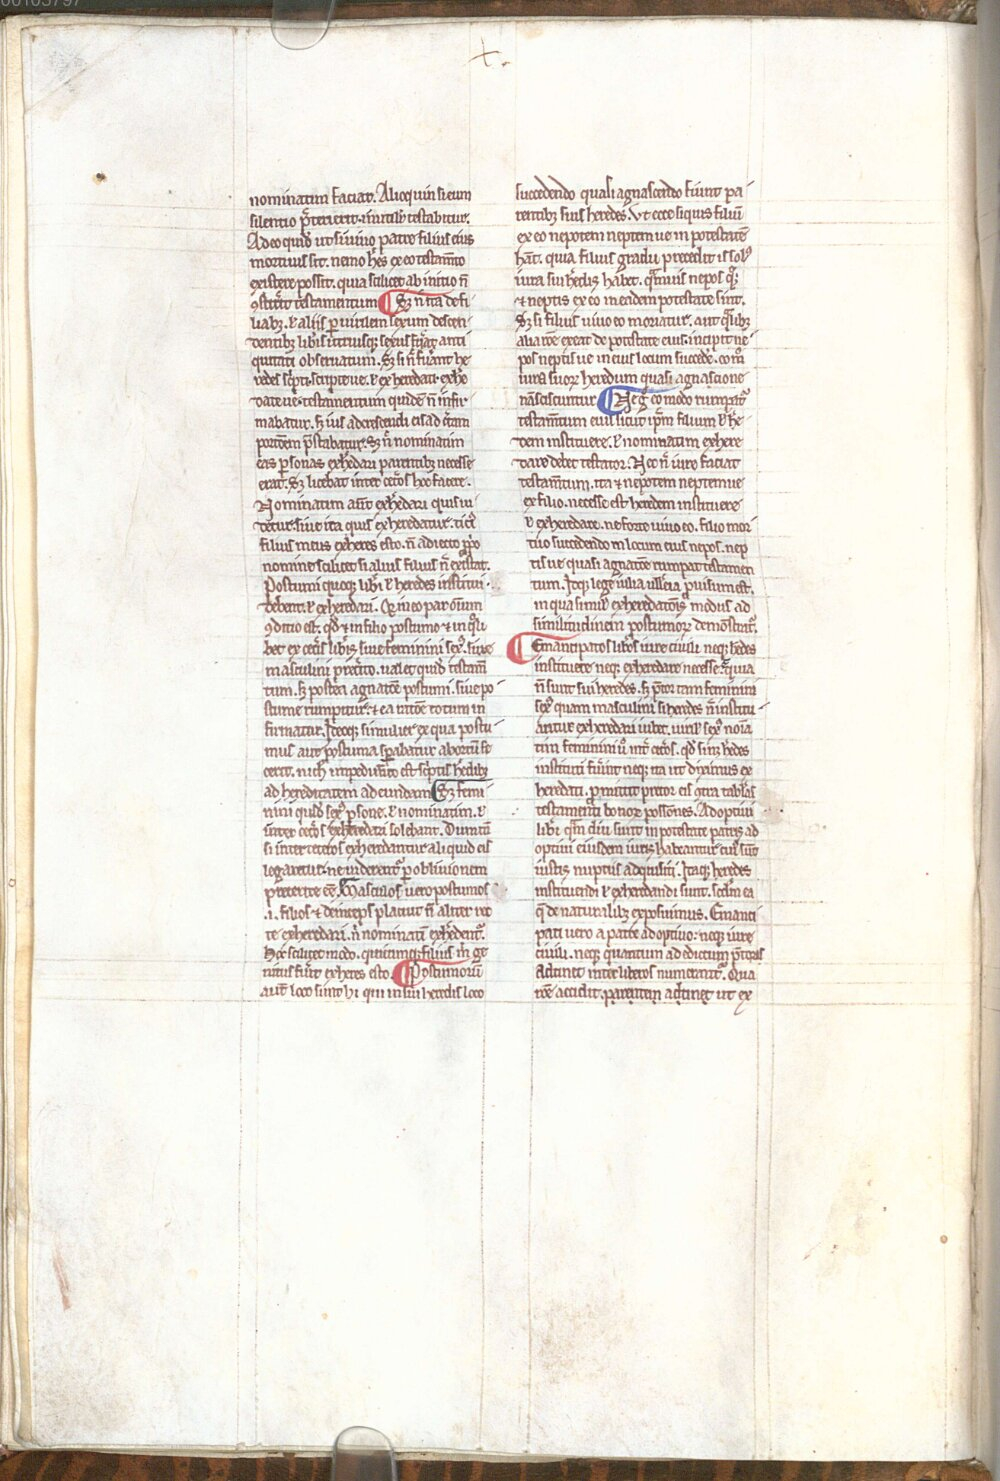 x.
nominatim faciat. Alioquin si eum
silentio p̃terierit. inutilit̃ testabitur.
Adeo quid̃ ut si uiuo patre filius eius
mortuus sit. nemo h̃es ex eo testam̃to
existere possit. quia scilicet ab initio ñ
ↄstit̃it testamentum ¶ Sꝫ ñ ita de fi
liabꝫ. ł aliis ꝑ uirilem sexum descen
dentibꝫ lib̃is utriusqꝫ sexus fũat anti
quitati obseruatum. Sꝫ si ñ fũant he
redes sc̃pti. scripteue. ł exheredati. exhe
dateue. testamentum quidẽ ñ infir
mabatur. sꝫ ius adcrescendi eis ad c̃tam
portõem p̃stabatur. Sꝫ ñ nominatim
eas ꝑsonas exh̃edari parentibꝫ necesse
erat. Sꝫ licebat inter cet̃os hoc facere.
Nominatim aut̃ exh̃edari quis ui
detur. siue ita quis exheredatur. tici᷒
filius meus exheres esto. ñ adiecto ꝓp̃o
nomine scilicet si alius filius ñ exstat.
Postumi quoqꝫ lib̃i ł heredes institui
debent. ł exheredari. Et in eo par om̃ium
ↄditio est. qđ ⁊ in filio postumo ⁊ in qͦli
bet ex cet̃is lib̃is siue feminini sex᷒. siue
masculini preterito. ualet quid̃ testam̃
tum. sꝫ postea agnatõe postumi. siue po
stume rumpitur. ⁊ ea ratõe totum in
firmatur. Ideoqꝫ si mulier ex qua postu
mus aut postuma sꝑabatur abortũ fe
cerit. nich̃ impedim̃to est sc̃ptis h̃edibꝫ
ad hereditatem adeundam ¶ Sꝫ femi
nini quid̃ sex᷒ ꝑsone. ł nominatim. ł
inter cet̃os exh̃eredari solebant. Dum tñ
si inter ceteros exheredantur aliquid eis
legaretur. ne uiderent̃ ꝑ obliuionem
preterite eẽ. Masculos uero postumos
.i. filios ⁊ deinceps placuit ñ aliter rec
te exheredari. ñ nominatĩ exh̃edent̃.
Hoc scilicet modo. quicumqꝫ filius m̃ ge
nitus fũit exheres esto. ¶ Postumorũ
aut̃ loco sunt hi qui in sui heredis loco
succedendo quasi agnascendo fiunt pa
rentibꝫ sui heredes. Vt ecce siquis filiũ
ex eo nepotem neptem ue in potestate
hãt. quia filius gradu precedit is sol᷒
iura sui h̃edis habet. qͣmuis nepos qͦꝫ
⁊ neptis ex eo in eadem potestate sint.
Sꝫ si filius uiuo eo moriatur. aut qͣlibꝫ
alia rõe exeat de potestate eius. incipit ne
pos neptis ue in eius locum succede᷒. ⁊ eo mͦ
iura suoꝝ heredum quasi agnascione
nãsciscuntur ¶ Ne g̊ eo modo rumpat̃
testam̃tum eius sicut ip̃m filium ł he
dem instituere. ł nominatim exhere
dare debet testator. Ne ñ iure faciat
testam̃tum. ita ⁊ nepotem neptemue
ex filio. necesse est heredem instituere
ł exheredare. ne forte uiuo eo. filio mor
tuo succedendo in locum eius nepos. nep
tis ue quasi agnatõe rumpat testamen
tum. Idqꝫ lege iulia uelleia ꝓuisum est.
in qua simul̃ exheredatõis modus ad
similitudinem postumoꝝ demõstrat̃.
¶ Emancipatos lib̃os iure ciuili neqꝫ h̃edes
instituere neqꝫ exheredare necesse. quia
ñ sunt sui heredes. sꝫ p̃tor tam feminini
sex᷒ quam masculini si heredes ñ institu
antur exheredari iubet. uiril̃ sex᷒ noĩa
tim feminini ũ int̃ cet̃os. qđ si neqꝫ h̃edes
instituti fũint neqꝫ ita ut diximus ex
heredati. ꝓmittit pretor eis ↄtra tablãs
testamenti bonoꝝ possõnes. Adoptiui
lib̃i qͣm diu sunt in potestate patris ad
optiui eiusdem iuris habeantur cui᷒ sunt
iustis nuptiis adquisiti. Itaqꝫ heredes
instituendi ł exheredandi sunt. scd̃m ea
q̃ de naturalibꝫ exposuimus. Emanci
pati uero a patre adoptiuo. neqꝫ iure
ciuili. neqꝫ quantum ad edictum p̃toris
Adtinet inter liberos numerant̃. Qua
rõe accidit. ꝑ parentem adtinet ut ex